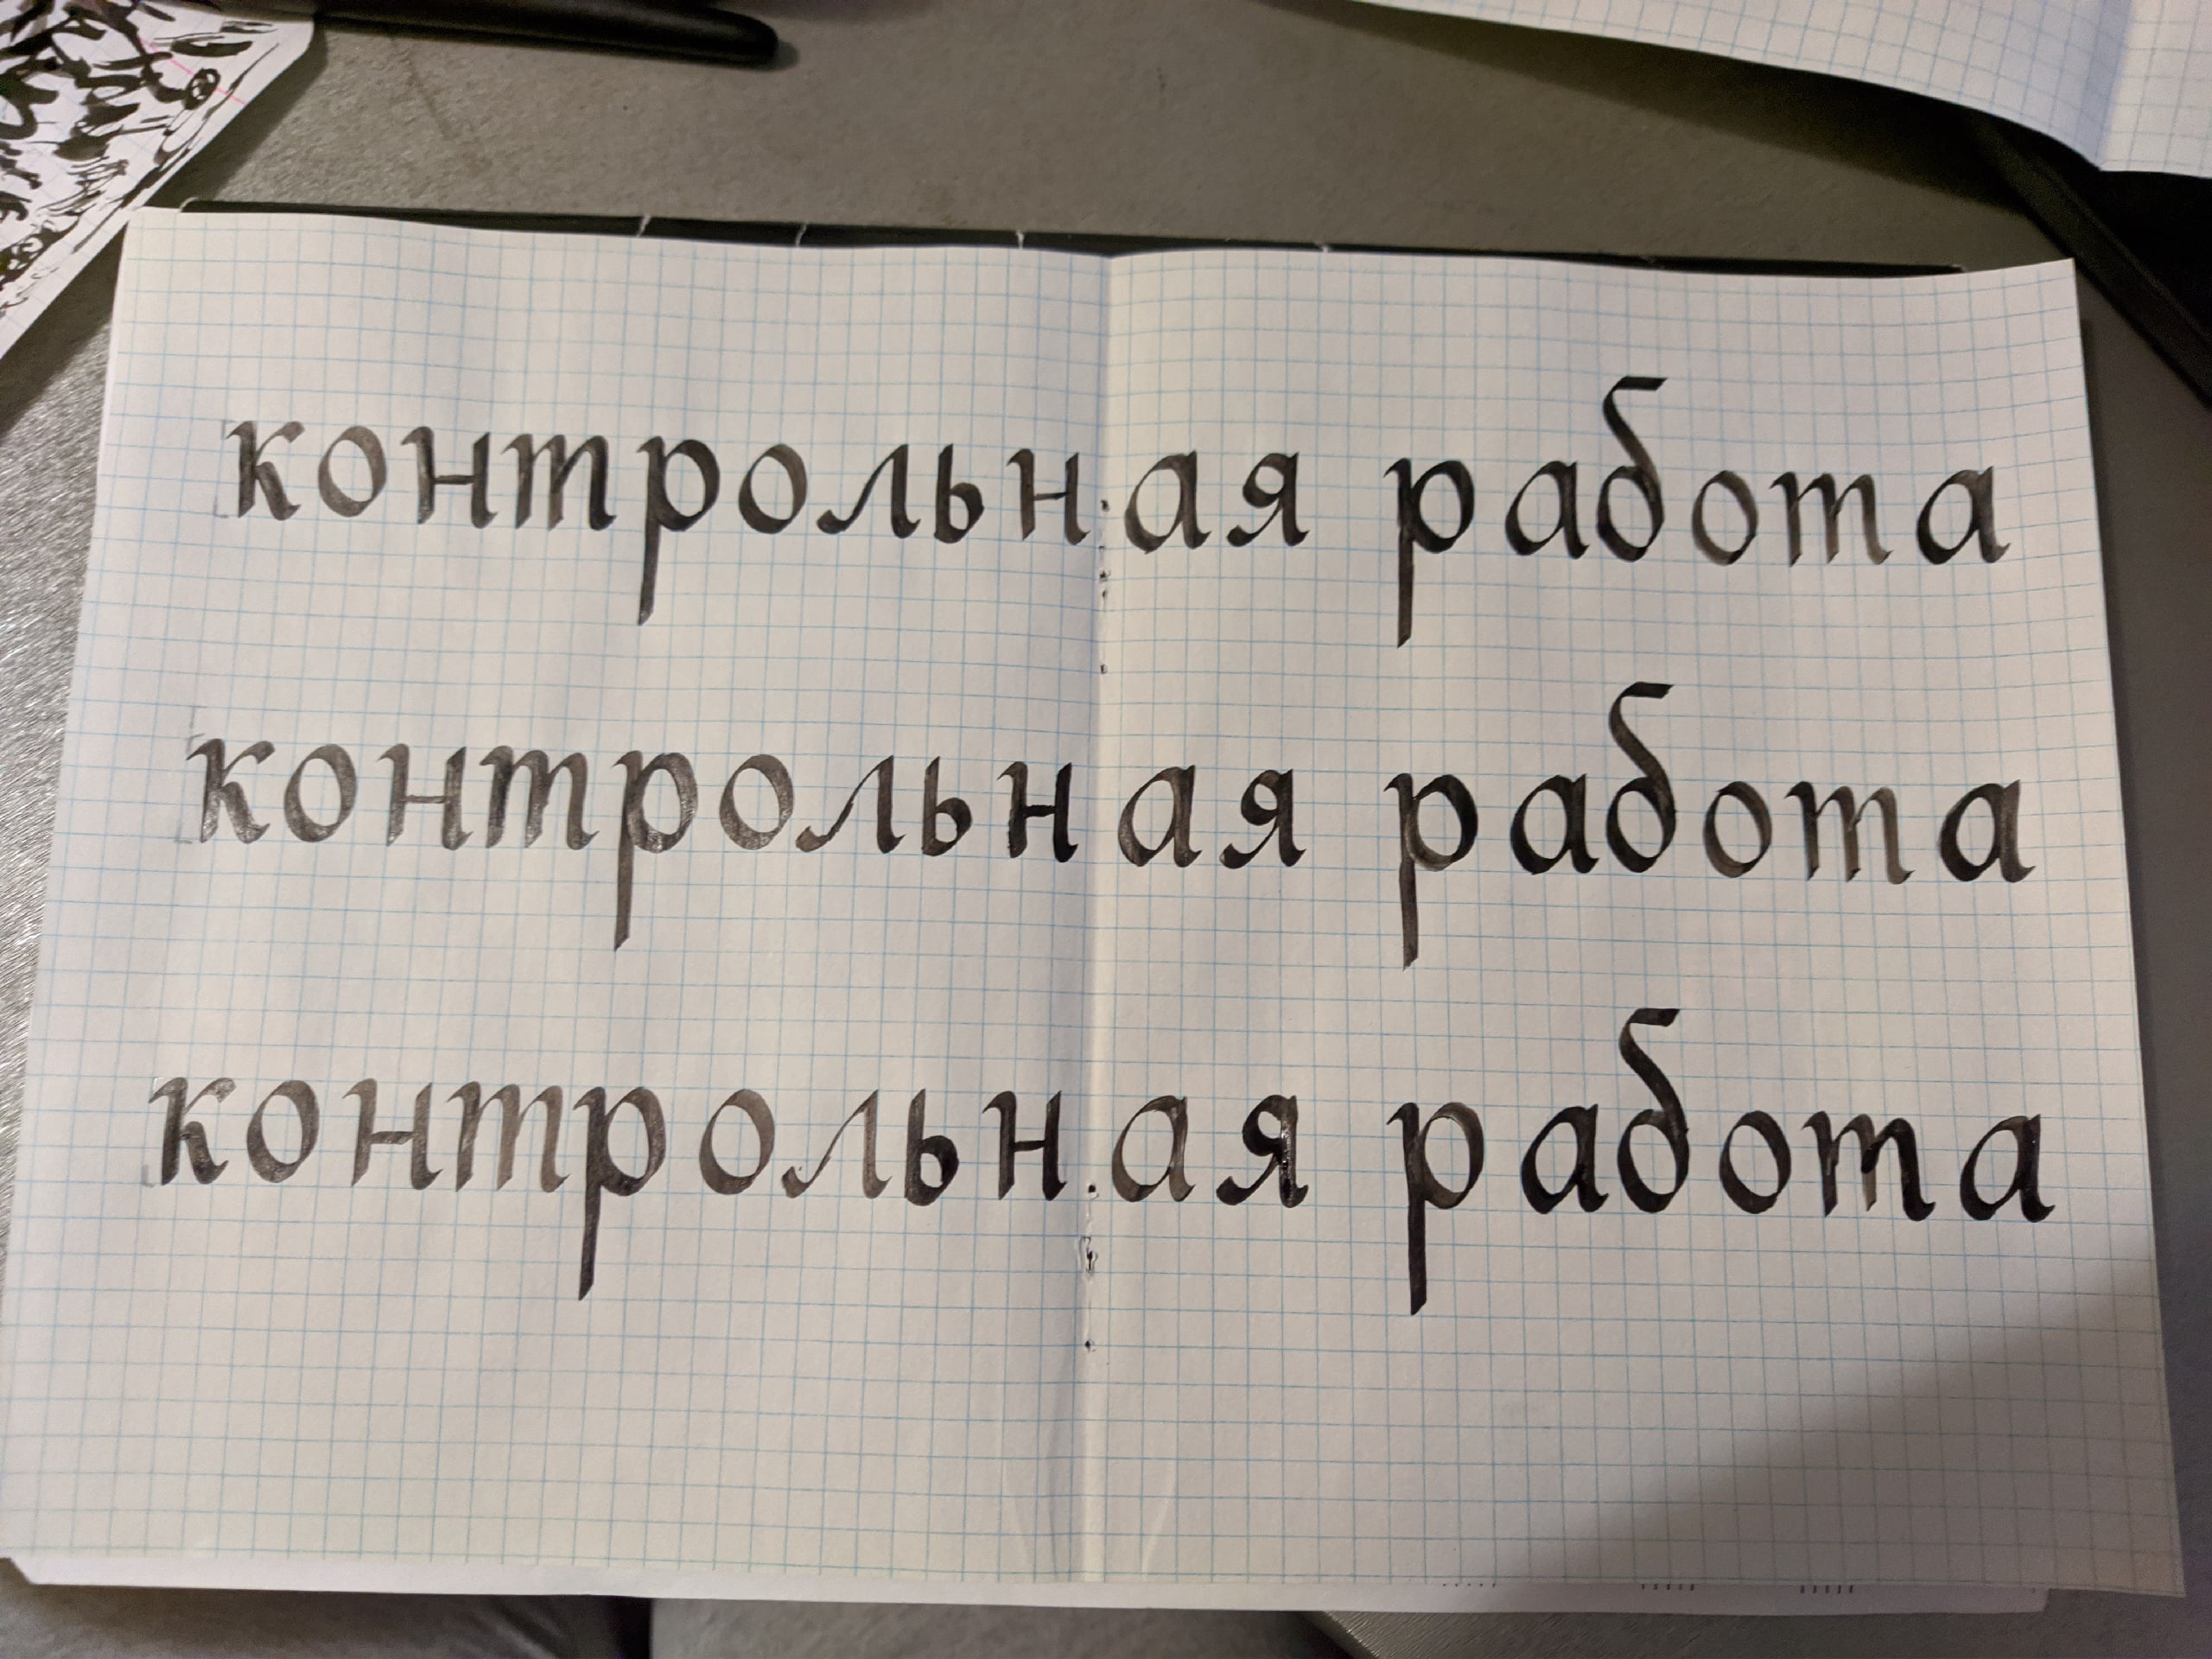 контрольная работа
контрольная работа
контрольная работа